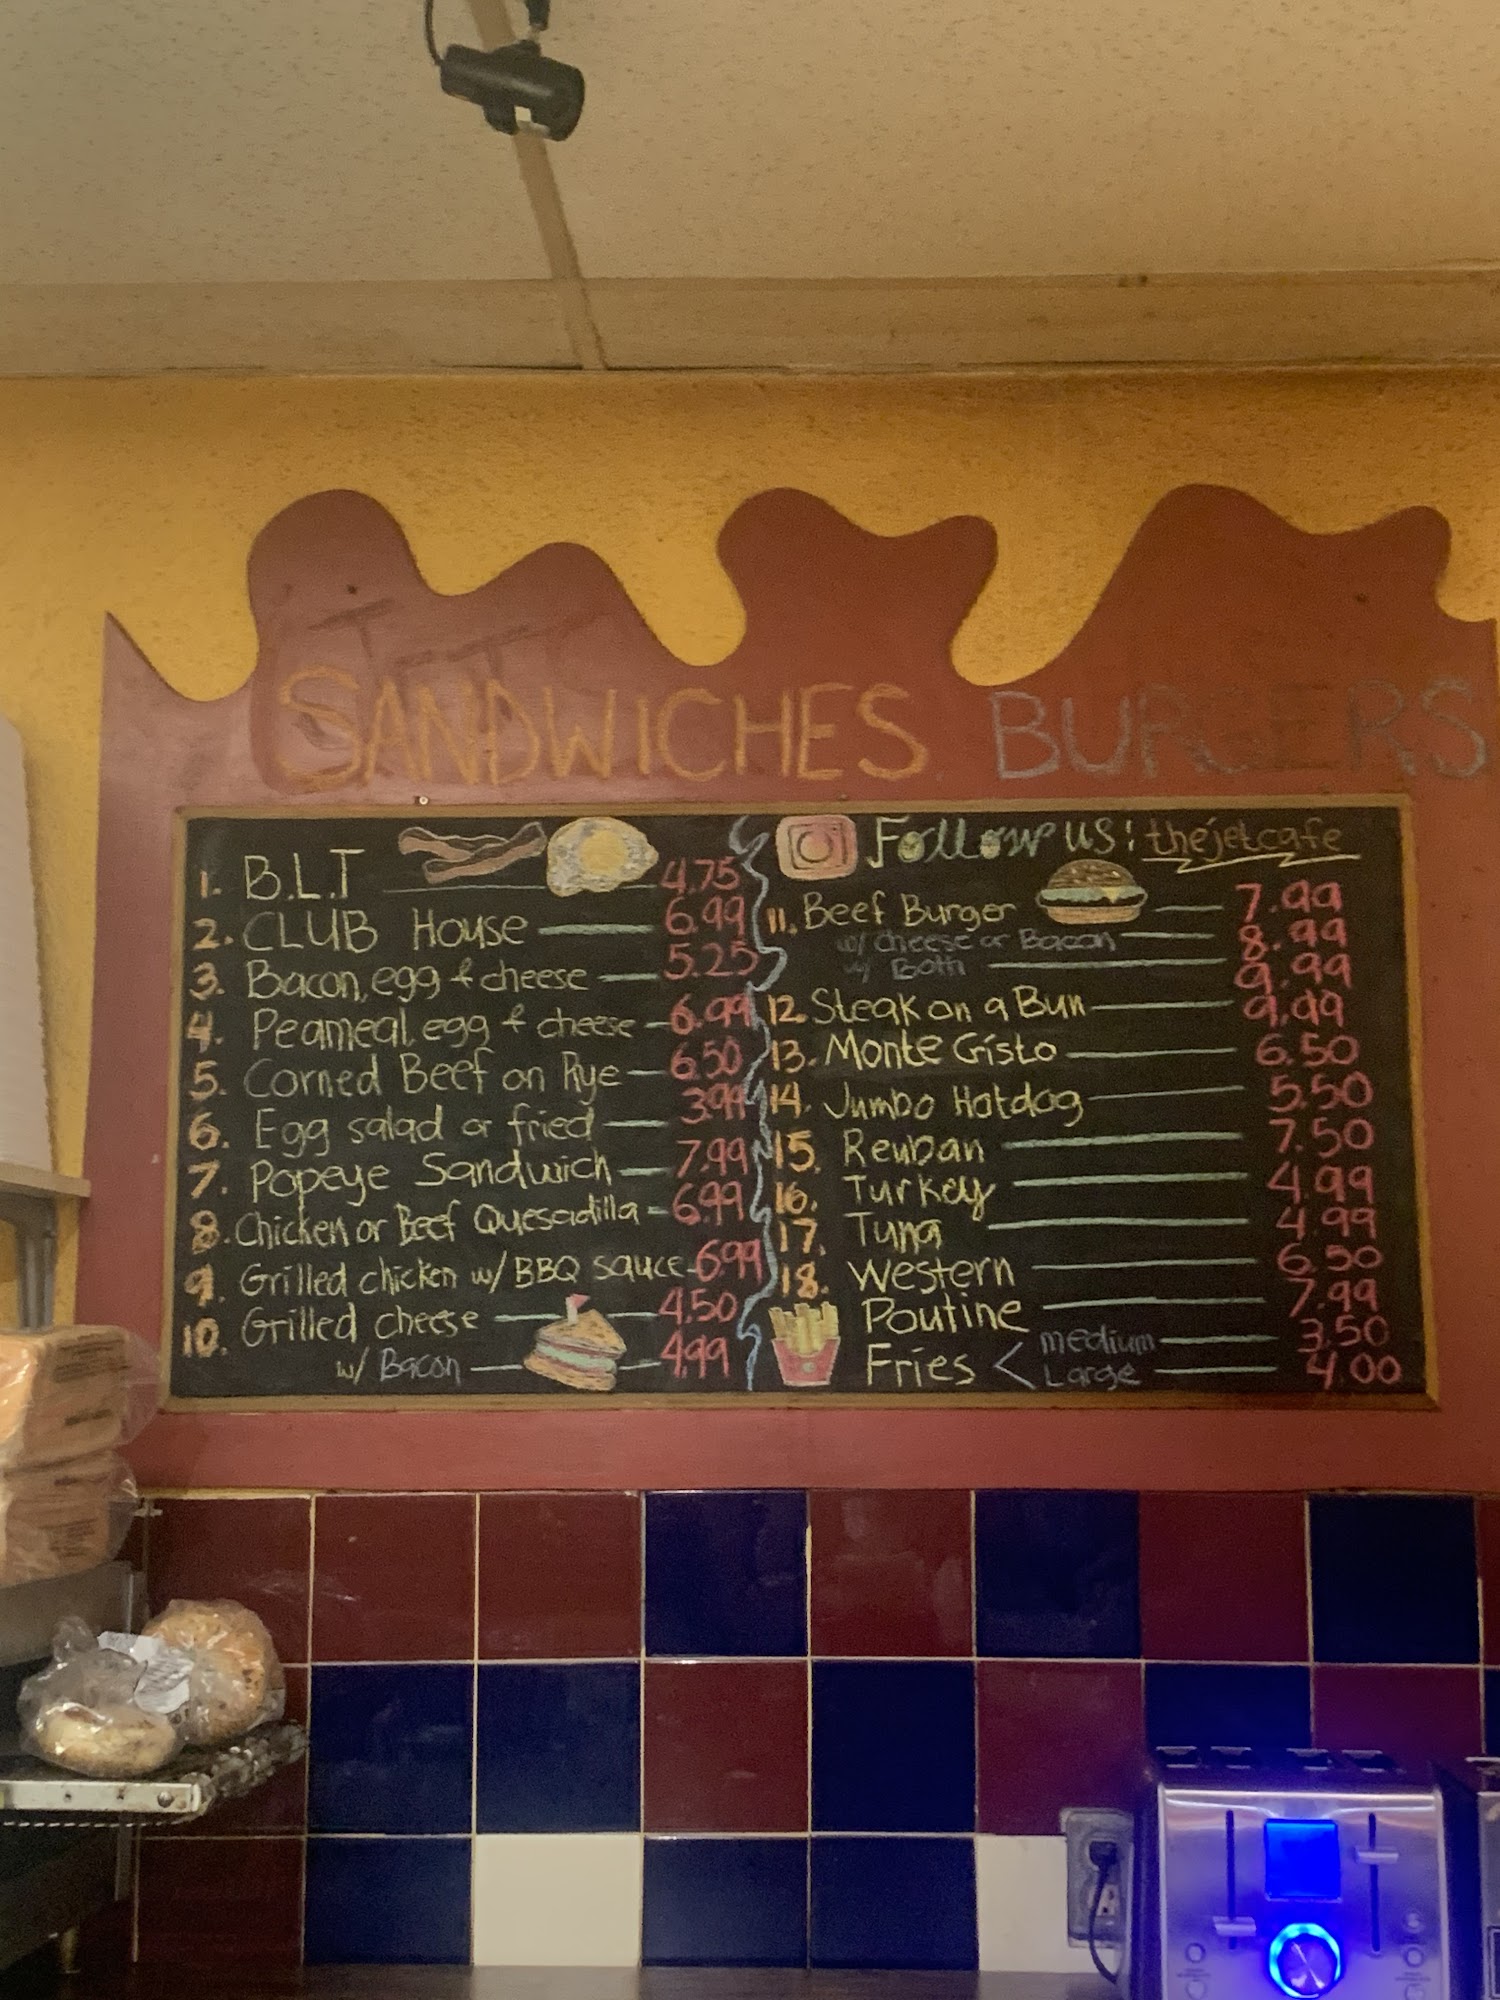 SANDWICHES BURGERS
1. B.L.T 4.75
2. CLUB House 6.99
3. Bacon, egg & cheese 5.25
4. Peameal, egg & cheese 6.99
5. Corned Beef on Rye 6.50
6. Egg salad or fried 3.99
7. Popeye Sandwich 7.99
8. Chicken or Beef Quesadilla 6.99
9. Grilled chicken w/ BBQ sauce 6.99
10. Grilled cheese 4.50
w/ Bacon 4.99
Follow us: thejetcafe
11. Beef Burger 7.99
w/ cheese or Bacon 8.99
w/ Both 9.99
12. Steak on a Bun 9.99
13. Monte Gristo 6.50
14. Jumbo Hotdog 5.50
15. Reuban 7.50
16. Turkey 4.99
17. Tuna 4.99
18. Western 6.50
Poutine 7.99
Fries < medium 3.50
Large 4.00